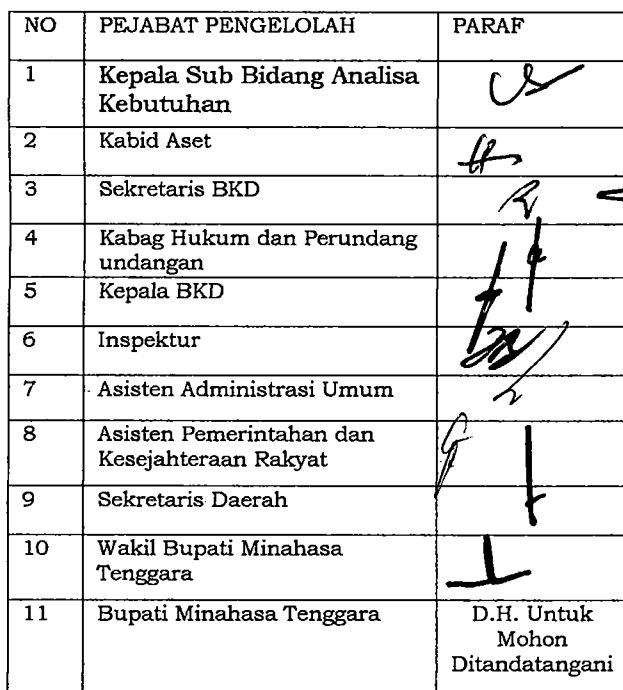 NO PEJABAT PENGELOLAH PARAF
1 Kepala Sub Bidang Analisa
Kebutuhan
2 Kabid Aset
3 Sekretaris BKD
4 Kabag Hukum dan Perundang
undangan
5 Kepala BKD
6 Inspektur
7 Asisten Administrasi Umum
8 Asisten Pemerintahan dan
Kesejahteraan Rakyat
9 Sekretaris Daerah
10 Wakil Bupati Minahasa
Tenggara
11 Bupati Minahasa Tenggara D.H. Untuk
Mohon
Ditandatangani